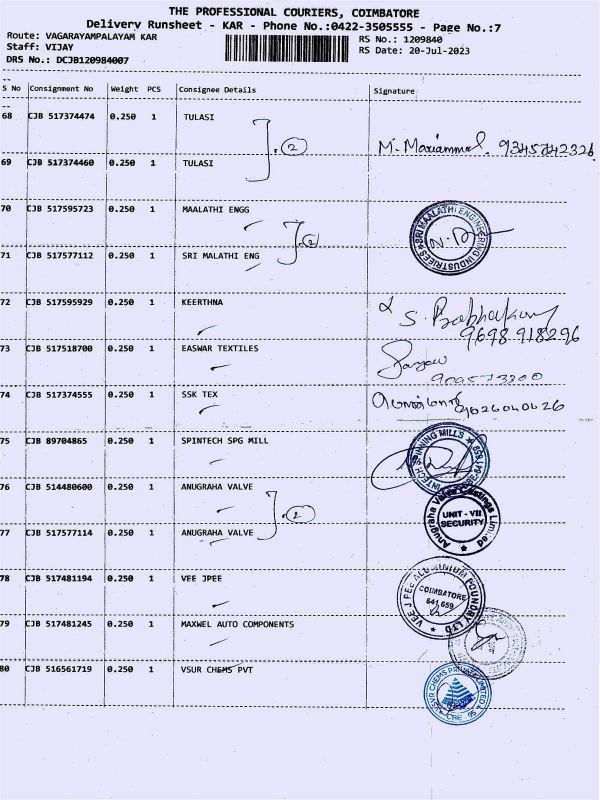 THE PROFESSIONAL COURIERS, COIMBATORE
Delivery Runsheet - KAR - Phone No.:0422-3505555 - Page No.:7
Route: VAGARAYAMPALAYAM KAR
RS No.: 1209840
Staff: VIJAY
RS Date: 20-Jul-2023
DRS No.: DCJB120984007
S No Consignment No Weight PCS Consignee Details Signature
68 CJB 517374474 0.250 1 TULASI
② M. Mariammal. 9345742326
69 CJB 517374460 0.250 1 TULASI
70 CJB 517595723 0.250 1 MAALATHI ENGG
② SRI MAALATHI ENGINEERING INDUSTRIES
71 CJB 517577112 0.250 1 SRI MALATHI ENG
72 CJB 517595929 0.250 1 KEERTHNA
S. Prabhakaran
9698918296
73 CJB 517518700 0.250 1 EASWAR TEXTILES
74 CJB 517374555 0.250 1 SSK TEX
75 CJB 89704865 0.250 1 SPINTECH SPG MILL
SPINNING MILLS
76 CJB 514480600 0.250 1 ANUGRAHA VALVE
② Anugraha Valve Castings Limited
UNIT - VII
SECURITY
77 CJB 517577114 0.250 1 ANUGRAHA VALVE
78 CJB 517481194 0.250 1 VEE JPEE
VEE J PEE ALUMINIUM FOUNDRY LTD
COIMBATORE
641 659
79 CJB 517481245 0.250 1 MAXWEL AUTO COMPONENTS
80 CJB 516561719 0.250 1 VSUR CHEMS PVT
CHEMS PRIVATE LIMITED